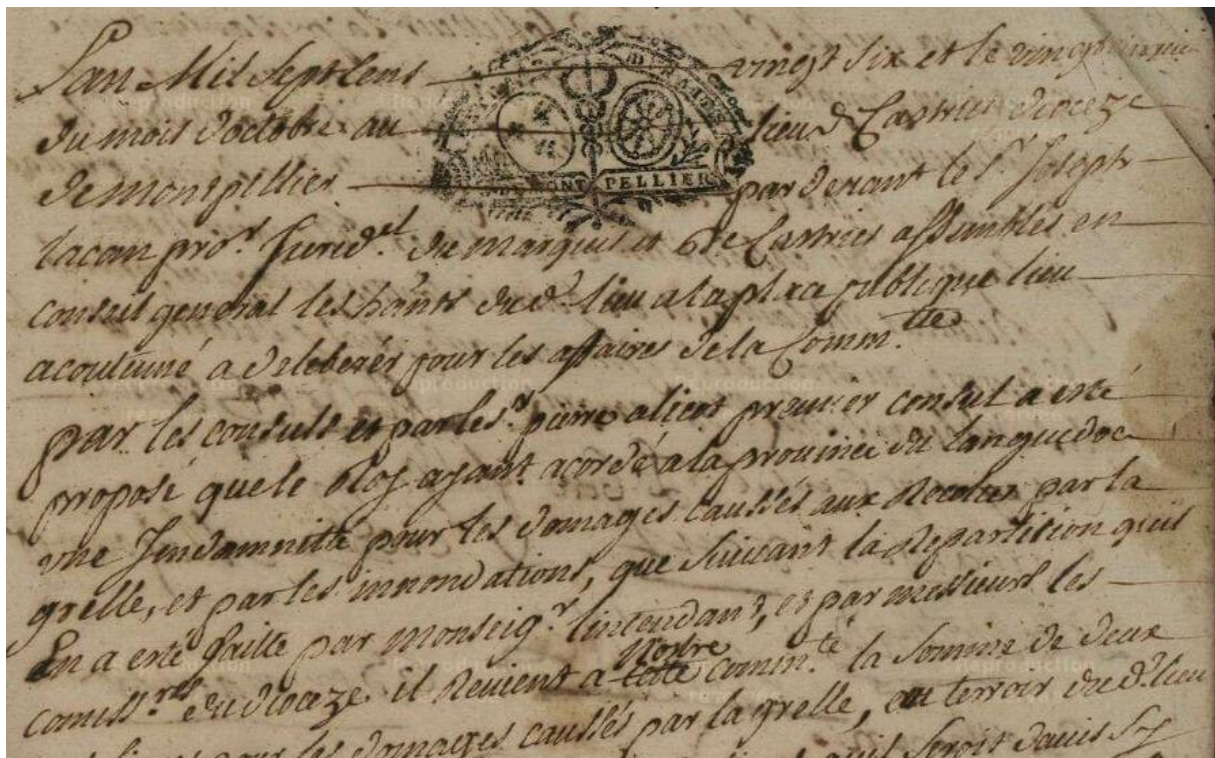 Lan Mil Sept Cens vingt six et le vingt
du mois doctobre au lieu de Castries dioceze
de Montpellier par devant le Sr Joseph
lacan pror. Juridel. du marquisat de Castries assemblés en
conseil general les hants dud. lieu a la place publique lieu
acoutumé a deleberér pour les affaires de la Comm.tté
par les consuls et par le sr. pierre premier consul a esté
proposé que le Roy ayant acordé a la province du languedoc
une Jndamnité pour les domages caussés aux Recoltes par la
grelle, et par les innondations, que suivant la Repartition quil
En a esté faitte par monseigr. lintendant, et par messieurs les
comissres. du dioceze il Revient a nostre commté. la somme de deux
pour les domages caussés par la grelle, au terroir dud. lieu
quil seroit davis sy
MONTPELLIER